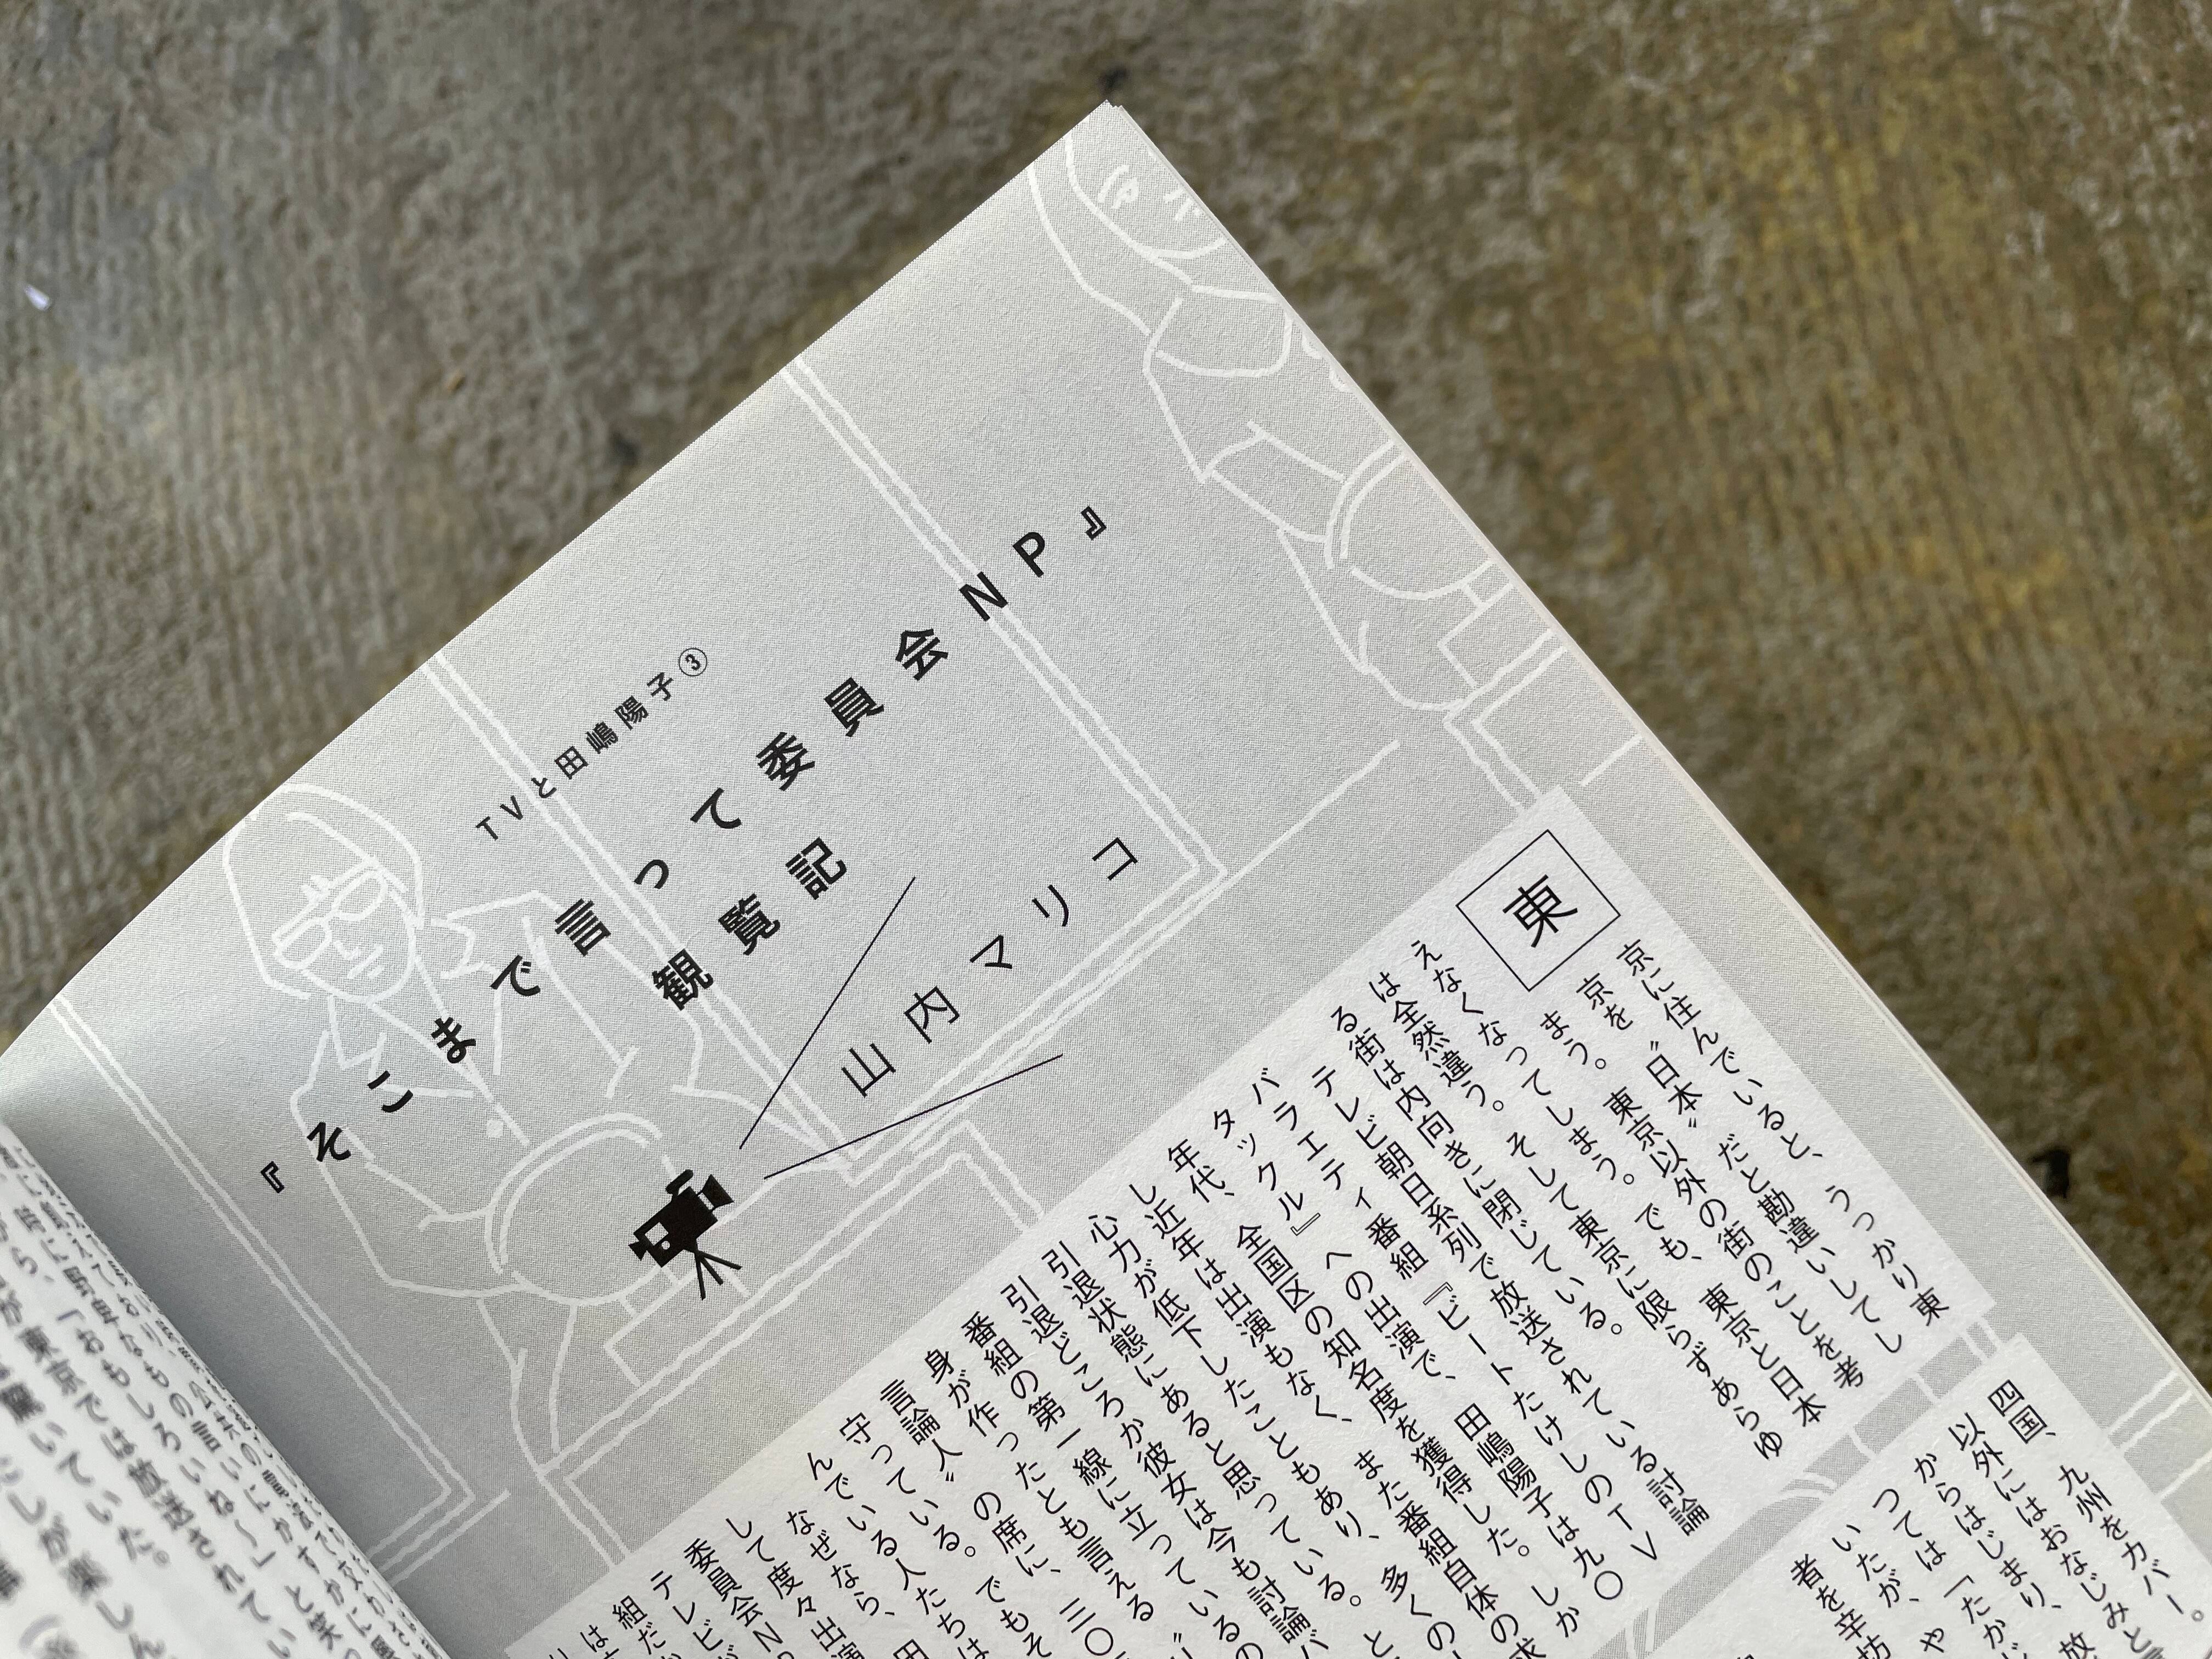 TVと田嶋陽子③
『そこまで言って委員会NP』
観覧記
山内マリコ
東
京に住んでいると、うっかり東
京を〝日本〟だと勘違いしてし
まう。東京以外の街のことを考
えなくなってしまう。でも、東京と日本
は全然違う。そして東京に限らずあらゆ
る街は内向きに閉じている。
テレビ朝日系列で放送されている討論
バラエティ番組『ビートたけしのTV
タックル』への出演で、田嶋陽子は九〇
年代、全国区の知名度を獲得した。しか
し近年は出演もなく、また番組自体の求
心力が低下したこともあり、多くの
引退状態にあると思っている。と
引退どころか彼女は今も討論バ
番組の第一線に立っているの
身が作ったとも言える〝
言論人〟の席に、三〇
守っている。でもそ
んでいる人たちは
なぜなら、田
して度々出演
委員会N
テレビ
組だか
は
四国、九州をカバー。
以外にはおなじみと言
からはじまり、放
つては「たかじ
いたが、や
者を辛坊
ら、「おもしろいね〜」と笑っ
が東京では放送されてい
驚いていた。
しが楽しん